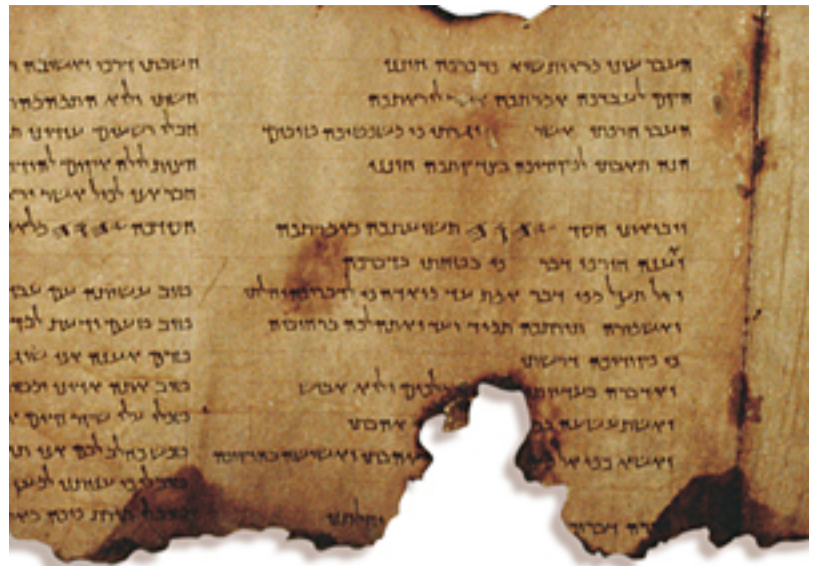 העבר עיני מראות שוא כדברכה חונני
הקם לעבדכה אמרתכה אשר ליראתכה
העבר חרפתי אשר יגורתי כי משפטיכה טובים
הנה תאבתי לפקודיכה בצדקתכה חונני
ויבואוני חסד 𐤉𐤄𐤅𐤄 תשועתכה כאמרתכה
ואענה חורפי דבר כי בטחתי בדברכה
ואל תצל מפי דבר אמת עד מואדה כי לדבריכה יחלתי
ואשמורה תורתכה תמיד ועד ואתהלכה ברחובה
כי פקודיכה דרשתי
ואדברה מלכים ולוא אבוש
ואשתעשעה אהבתי
ואשא כפי אל אהבתי ואשיחה בחוקיכה
יחלתני
חשבתי דרכי ואשיבה
חשתי ולוא
חבלי רשעים עודוני
חצות לילה אקום
חבר אני לכול אשר
חסדכה 𐤉𐤄𐤅𐤄
טוב עשיתה עם
טוב טעם ודעת
טרם אענה אני
טוב אתה אדוני
טפלו עלי שקר זדים
טפש כחלב לבם אני
לי כי עניתני למען
תורת פיכה